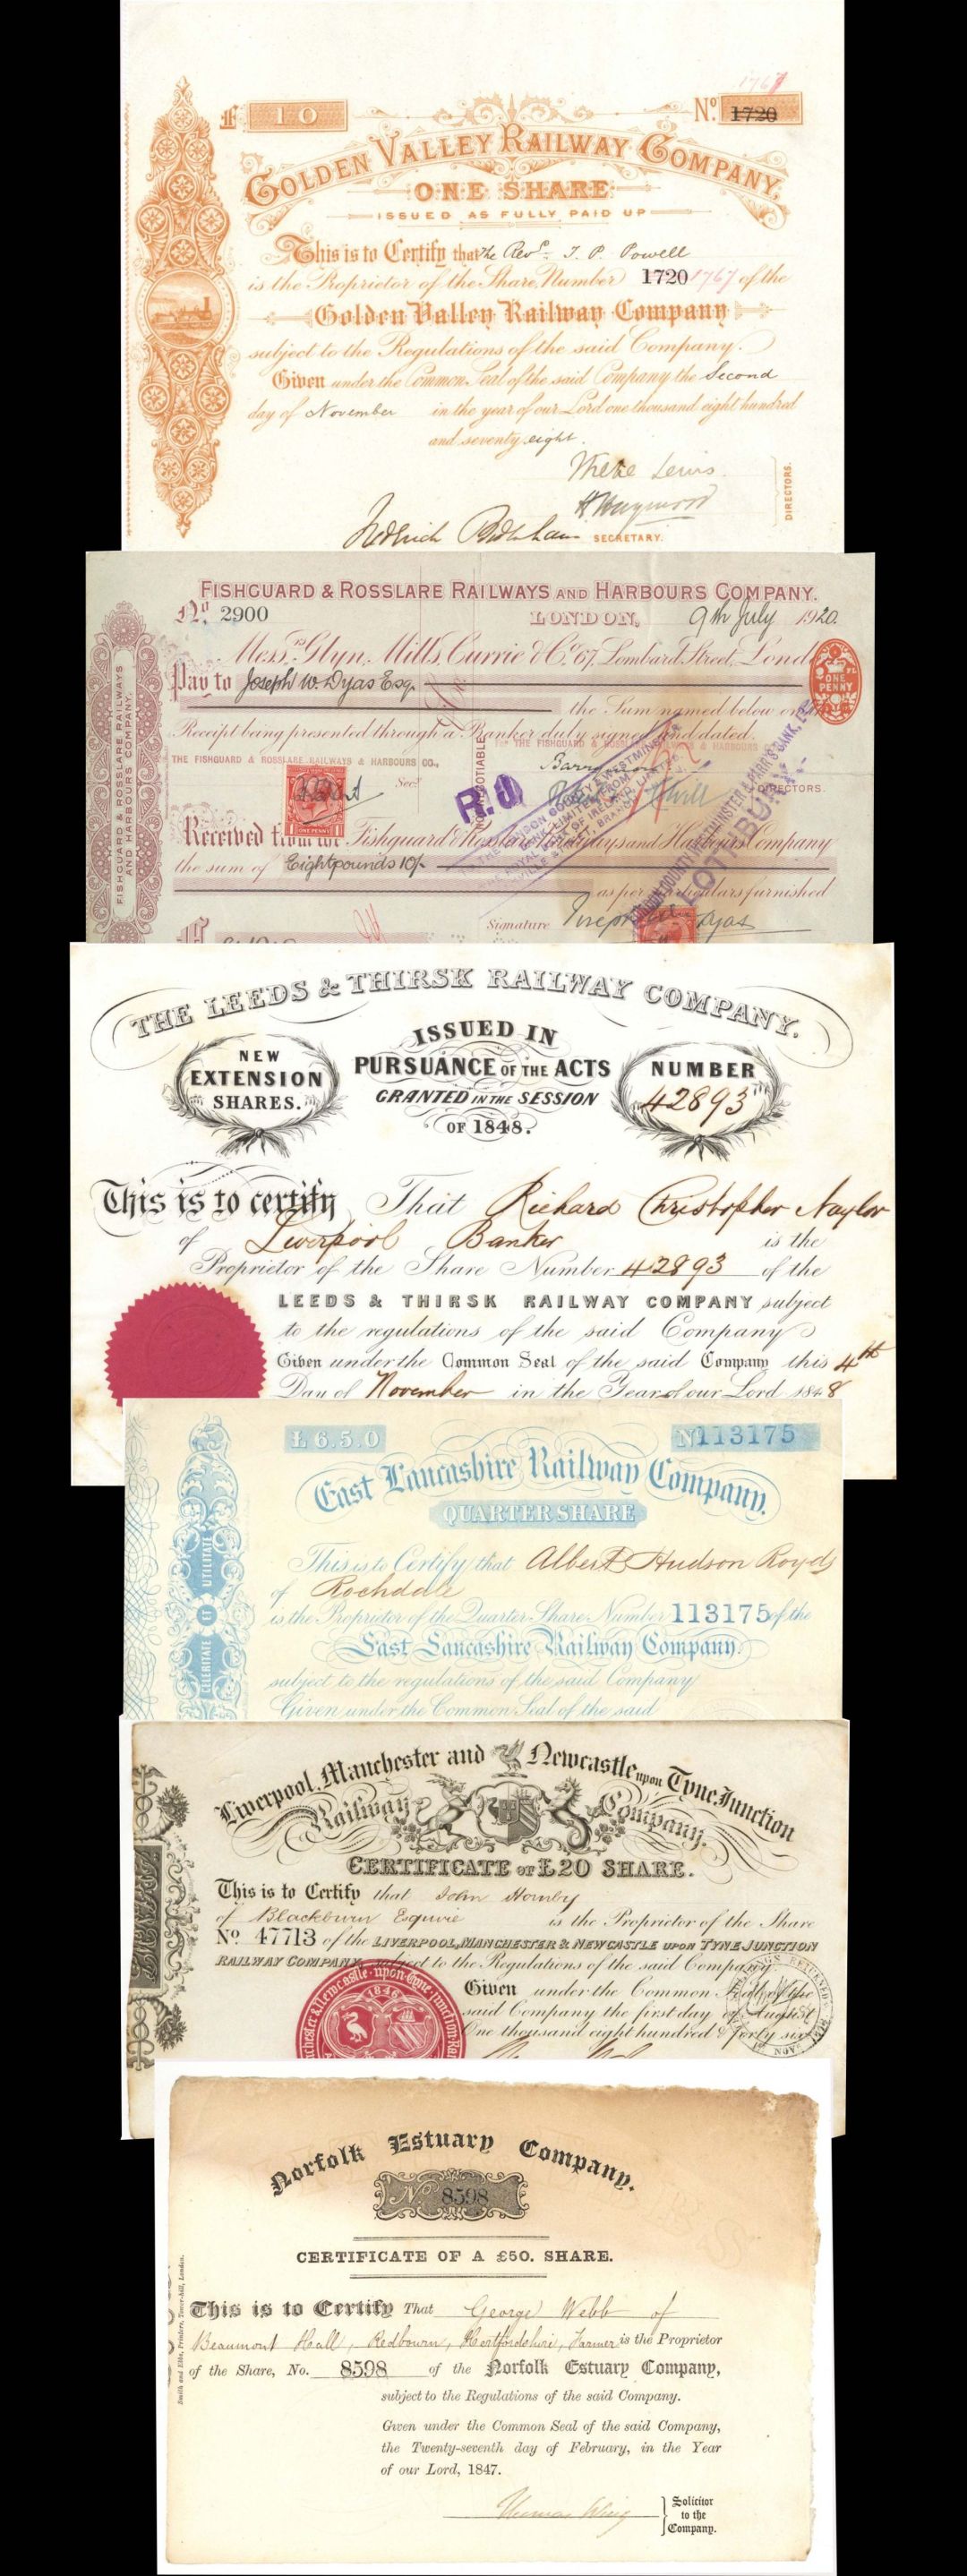 £ 10
No. 1720
1767
GOLDEN VALLEY RAILWAY COMPANY,
ONE SHARE
ISSUED AS FULLY PAID UP
This is to Certify that The Revd. T. P. Powell
is the Proprietor of the Share Number 1720 1767 of the
Golden Valley Railway Company
subject to the Regulations of the said Company.
Given under the Common Seal of the said Company the Second
day of November in the year of our Lord one thousand eight hundred
and seventy eight.
DIRECTORS.
SECRETARY.
FISHGUARD & ROSSLARE RAILWAYS AND HARBOURS COMPANY.
No. 2900 LONDON, 9th July 1920.
Messrs. Glyn, Mills, Currie & Co. 67, Lombard Street, London
ONE PENNY
Pay to Joseph W. Dyas Esq.
the Sum named below on
Receipt being presented through a Banker duly signed and dated.
For THE FISHGUARD & ROSSLARE RAILWAYS & HARBOURS
THE FISHGUARD & ROSSLARE RAILWAYS & HARBOURS CO.,
Secy.
DIRECTORS.
R.J
ONE PENNY
Received from the Fishguard & Rosslare Railways and Harbours Company
the sum of Eight pounds 10/-
as per particulars furnished
Signature
FISHGUARD & ROSSLARE RAILWAYS
AND HARBOURS COMPANY.
LOTHBURY
THE LEEDS & THIRSK RAILWAY COMPANY.
NEW
EXTENSION
SHARES.
ISSUED IN
PURSUANCE OF THE ACTS
GRANTED IN THE SESSION
OF 1848.
NUMBER
42893
This is to certify That Richard Christopher Naylor
of Liverpool Banker is the
Proprietor of the Share Number 42893 of the
LEEDS & THIRSK RAILWAY COMPANY subject
to the regulations of the said Company
Given under the Common Seal of the said Company this 4th
Day of November in the Year of our Lord 1848
£6.5.0
No 113175
East Lancashire Railway Company.
QUARTER SHARE
This is to Certify that Albert Hudson Royds
of Rochdale
is the Proprietor of the Quarter Share Number 113175 of the
East Lancashire Railway Company.
subject to the regulations of the said Company
Given under the Common Seal of the said
CELERITATE ET UTILITATE
Liverpool, Manchester and Newcastle upon Tyne Junction
Railway Company.
CERTIFICATE OF £20 SHARE.
This is to Certify that John Hornby
of Blackburn Esquire is the Proprietor of the Share
No. 47713 of the LIVERPOOL, MANCHESTER & NEWCASTLE UPON TYNE JUNCTION
RAILWAY COMPANY subject to the Regulations of the said Company
Given under the Common Seal of the
said Company the first day of August
One thousand eight hundred & forty six
1846
Norfolk Estuary Company.
No. 8598
CERTIFICATE OF A £50. SHARE.
This is to Certify That George Webb of
Beaumont Hall, Redbourn, Hertfordshire, Farmer is the Proprietor
of the Share, No. 8598 of the Norfolk Estuary Company,
subject to the Regulations of the said Company.
Given under the Common Seal of the said Company,
the Twenty-seventh day of February, in the Year
of our Lord, 1847.
Solicitor
to the
Company.
Smith and Ebbs, Printers, Tower-hill, London.